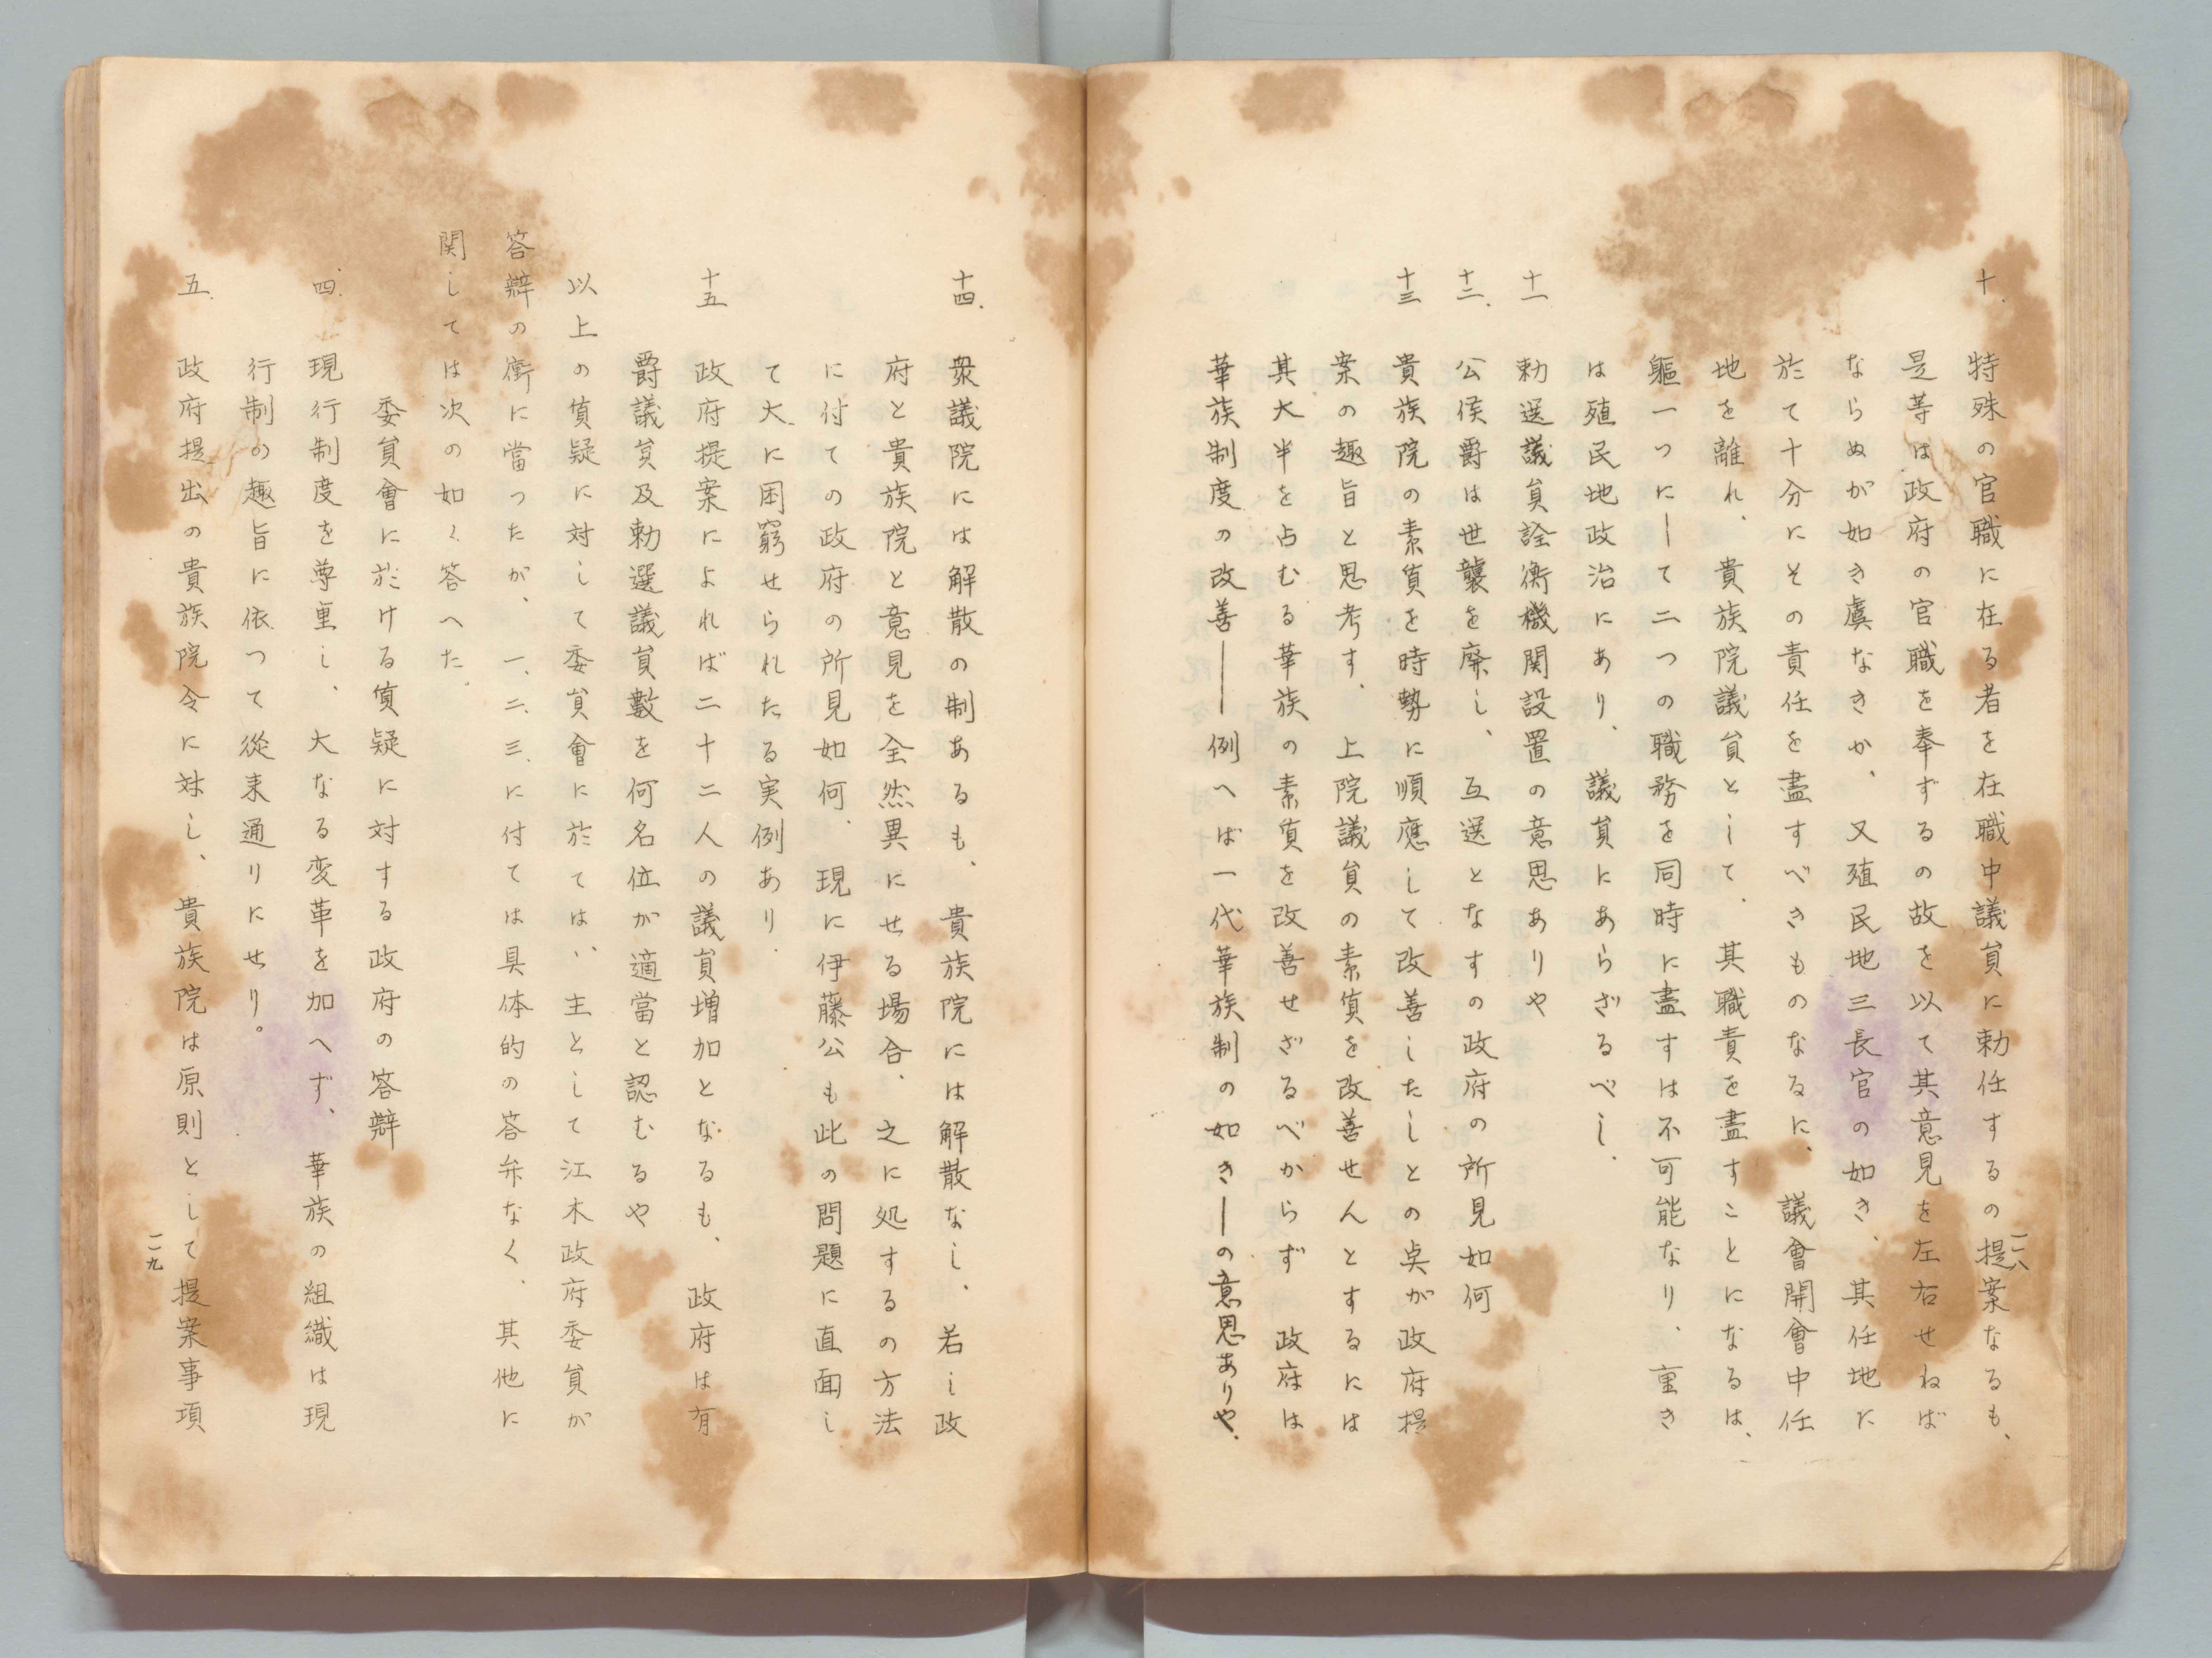 十、特殊の官職に在る者を在職中議員に勅任するの提案なるも、
是等は政府の官職を奉ずるの故を以て其意見を左右せねば
ならぬが如き虞なきか、又殖民地三長官の如き、其任地に
於て十分にその責任を盡すべきものなるに、議會開會中任
地を離れ、貴族院議員として、其職責を盡すことになるは、
軀一つにして二つの職務を同時に盡すは不可能なり、重き
は殖民地政治にあり、議員にあらざるべし、
十一 勅選議員詮衡機関設置の意思ありや
十二、公侯爵は世襲を廃し、互選となすの政府の所見如何
十三 貴族院の素質を時勢に順應して改善したしとの点が政府提
案の趣旨と思考す、上院議員の素質を改善せんとするには
其大半を占むる華族の素質を改善せざるべからず 政府は
華族制度の改善――例へば一代華族制の如き―の意思ありや、
二八
十四、衆議院には解散の制あるも、貴族院には解散なし、若し政
府と貴族院と意見を全然異にせる場合、之に処するの方法
に付ての政府の所見如何、現に伊藤公も此の問題に直面し
て大に困窮せられたる実例あり、
十五 政府提案によれば二十二人の議員増加となるも、政府は有
爵議員及勅選議員數を何名位が適當と認むるや
以上の質疑に対して委員會に於ては、主として江木政府委員が
答辯の衝に當つたが、一、二、三、に付ては具体的の答弁なく、其他に
関しては次の如く答へた。
委員會に於ける質疑に対する政府の答辯
四、現行制度を尊重し、大なる変革を加へず、華族の組織は現
行制の趣旨に依つて從来通りにせり。
五、政府提出の貴族院令に対し、貴族院は原則として提案事項
二九